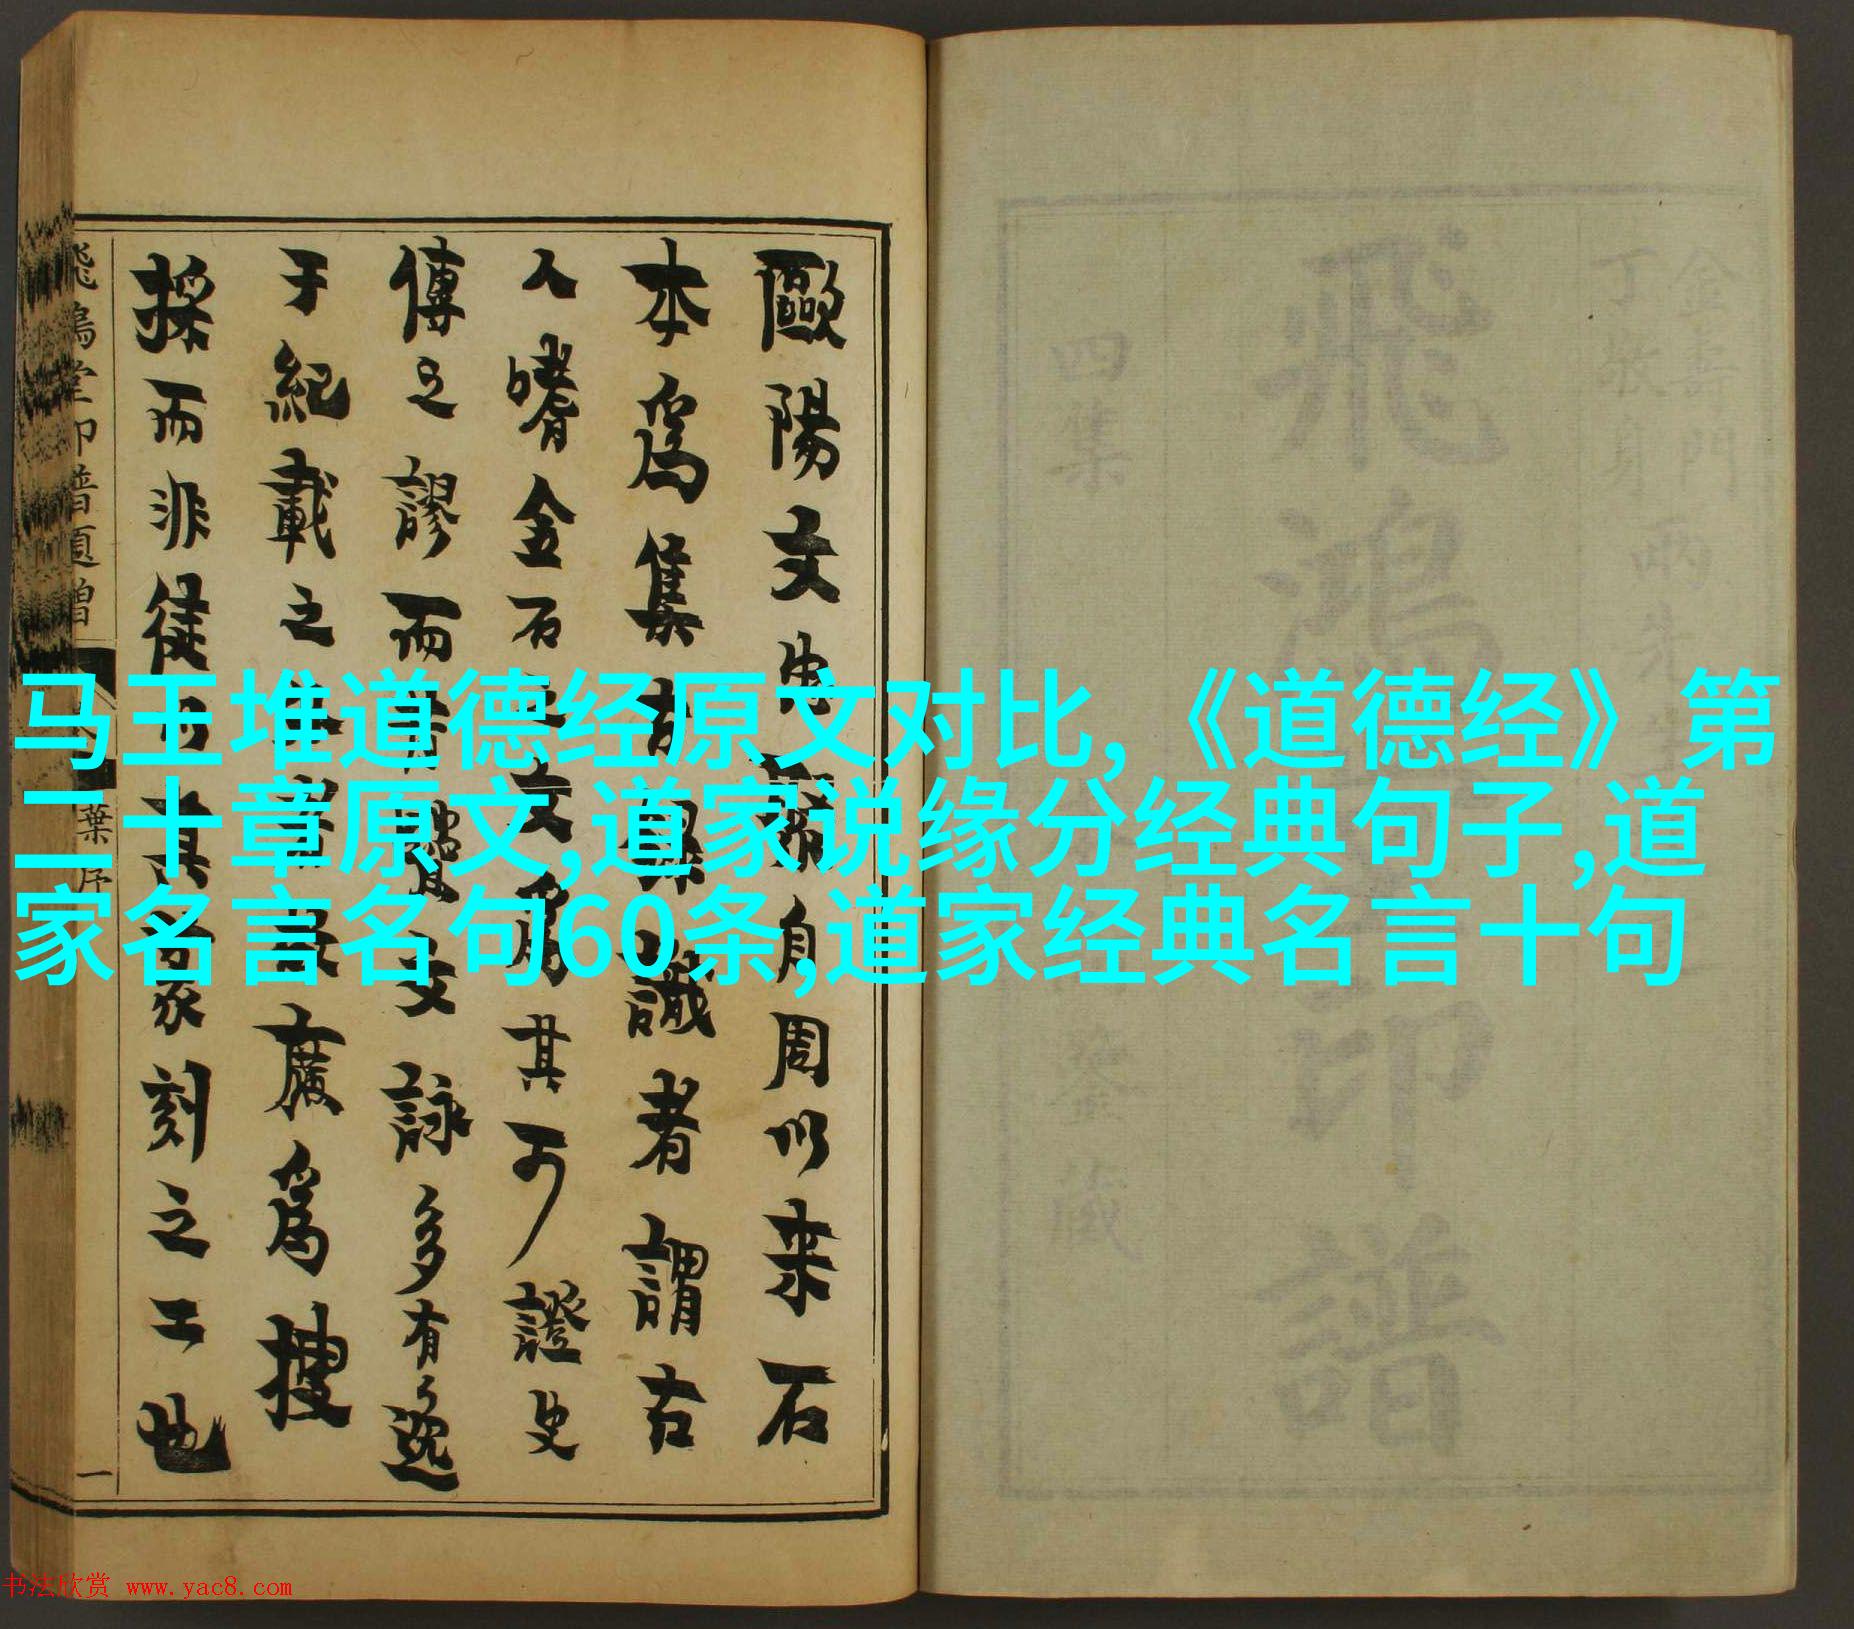 马王堆道德经原文对比,《道德经》第
二十章原文,道家说缘分经典句子,道
家名言名句60条,道家经典名言十句
金壽門
丁敬身
兩先生
飛鴻堂印譜
四集
鑒藏
歐陽文忠自周以来石
本爲集古録識者謂古
人嗜金石之文爲其可證史
傳之謬而昔賢文詠多有逸
于紀載之者爲搜
採而非徒以其篆刻之工也
飛鴻堂印譜題贈
葉序
一
书法欣赏 www.yac8.com